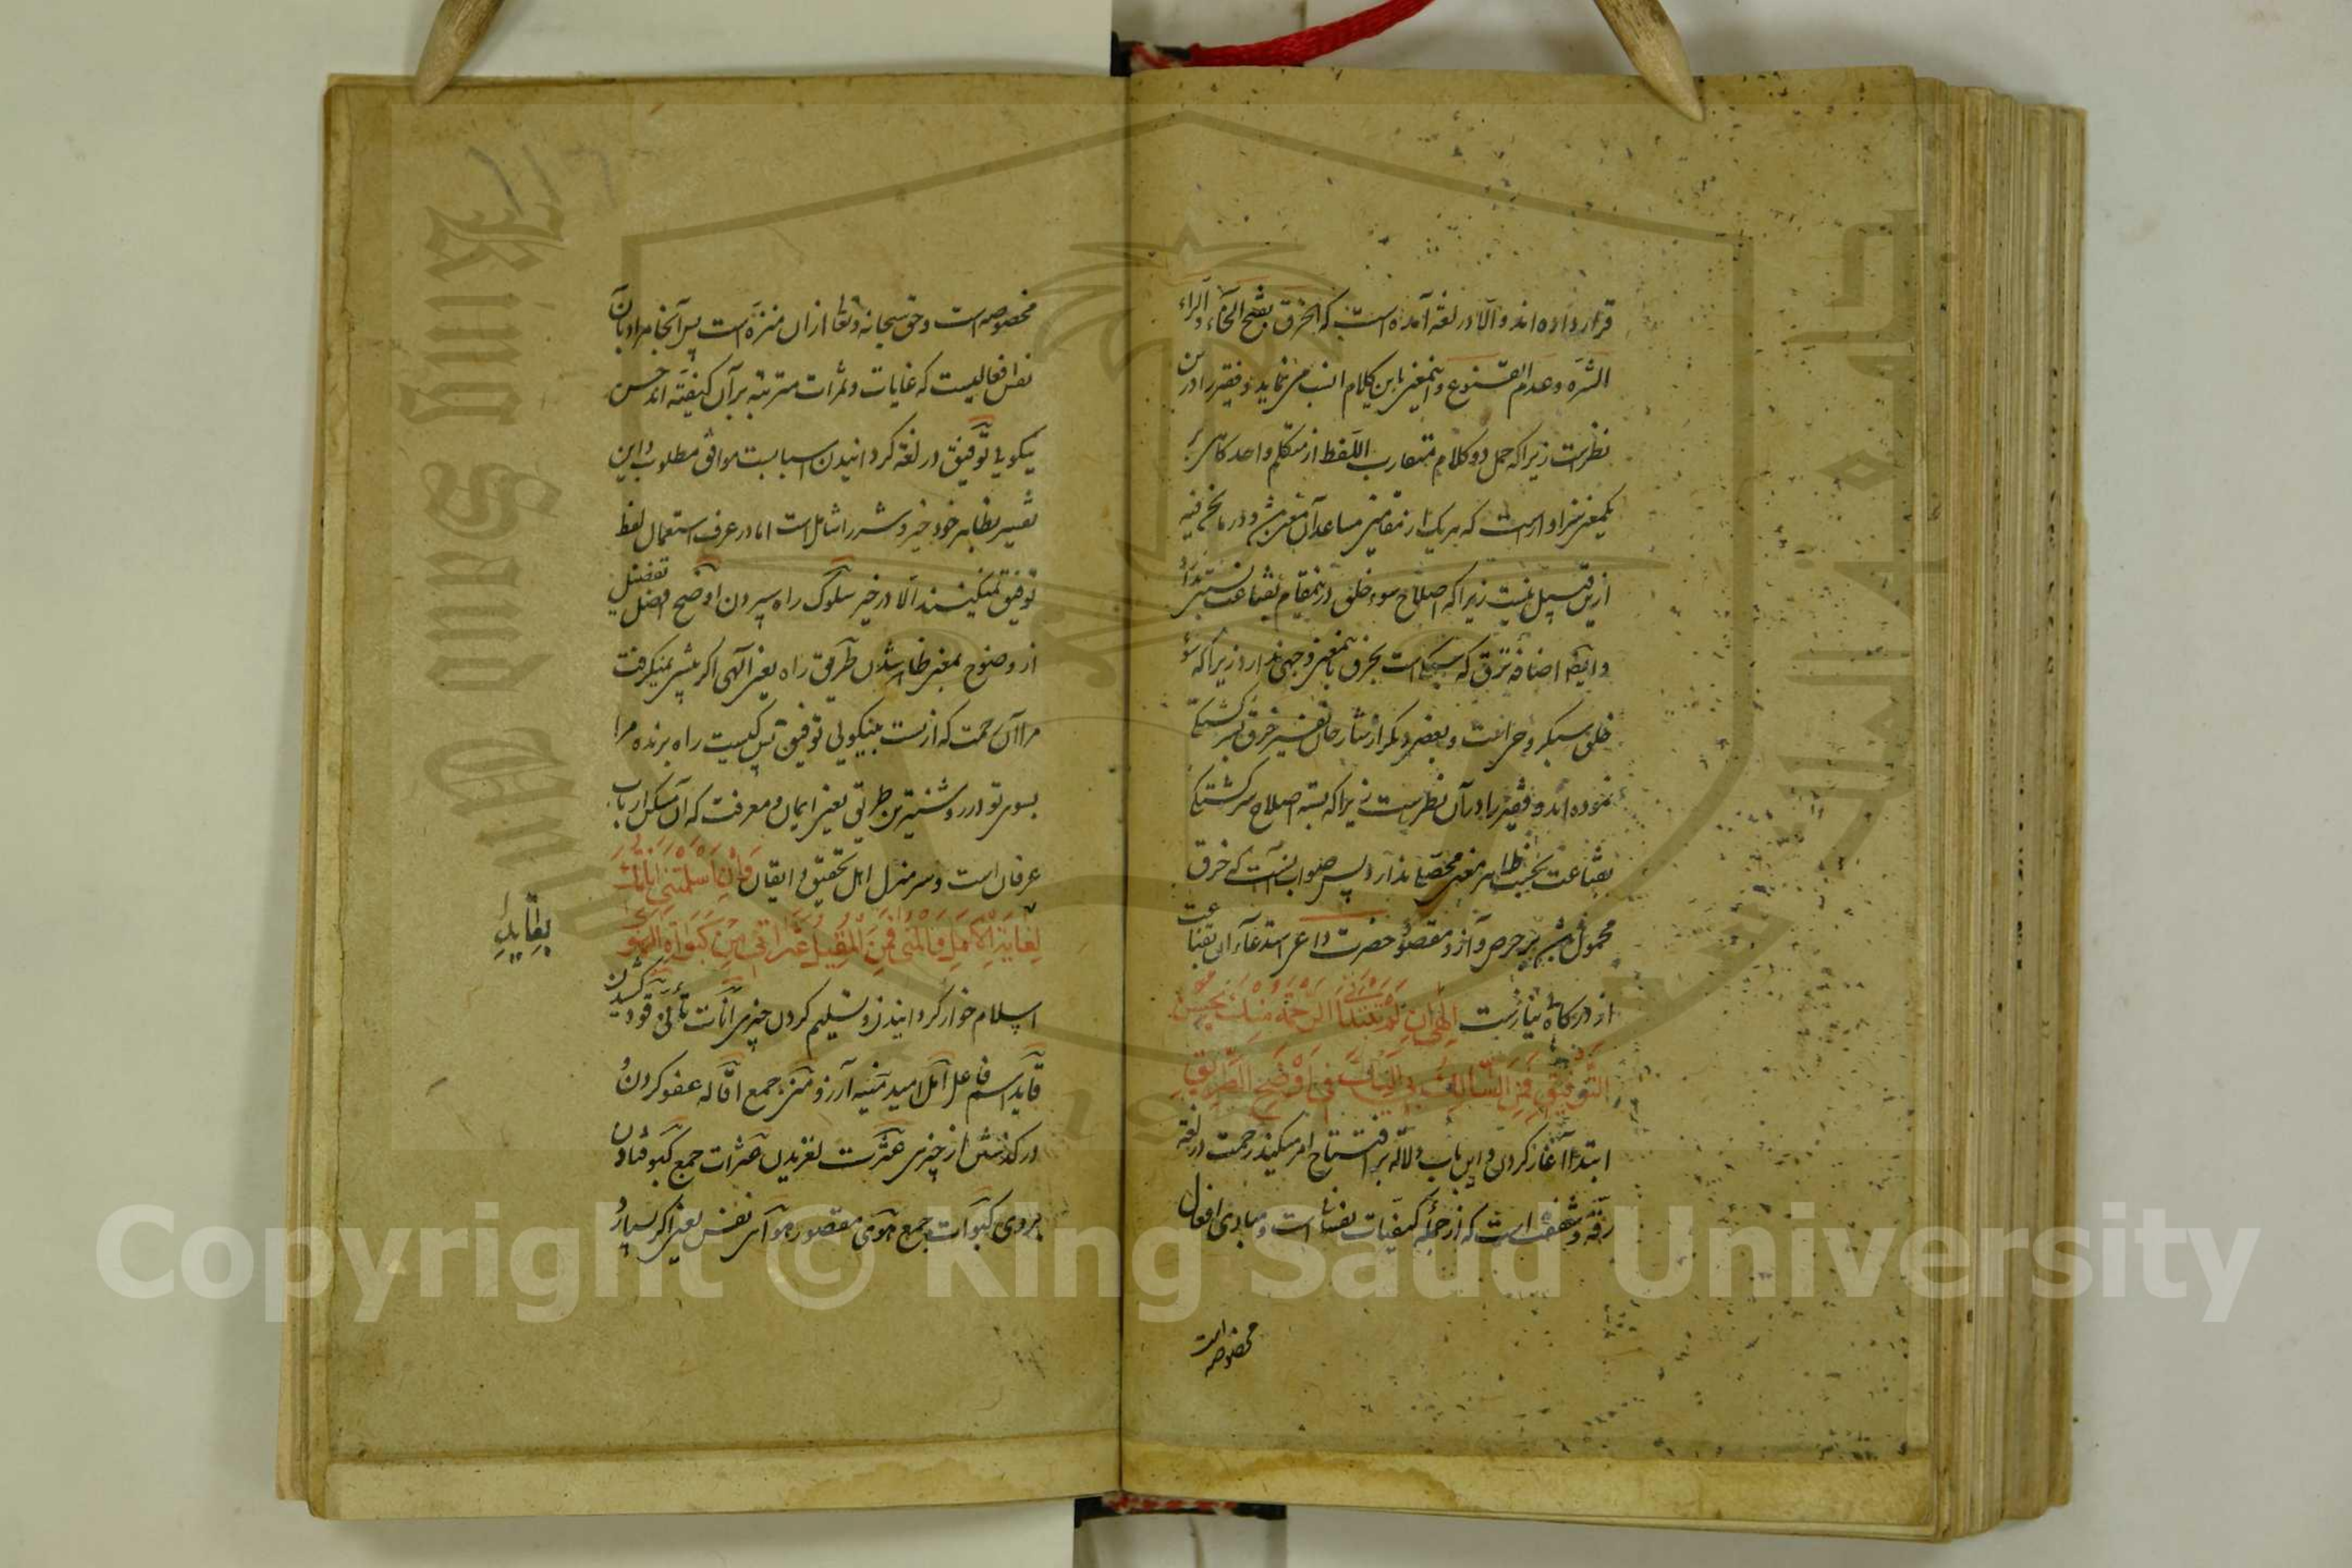 قرار داده اند و الا در لغة آمده است که الخرق بضم الخاء و الراء
الشره و عدم القنوع و اینمعنی باین کلام انسب می نماید و فقیر را درین
نظرست زیراکه حمل دو کلام متقارب اللفظ از متکلم واحد کاهی بر
یکمعنی سزاوارست که هر یک از مقامین مساعد آن معنی باشد و در مانحن فیه
ازین قبیل نیست زیراکه اصلاح سوء خلق درینمقام بقناعت
و ایضا اضافه نزق که سبکیست بخرق باینمعنی وجهی ندارد زیراکه سوء
خلق سبکی و بعضی دیگر از شارحان تفسیر خرق بسرکشتکی
نموده اند و فقیر را در آن نظرست زیراکه اصلاح سرکشتکی
بقناعت بحسب ظاهر معنی محصلی ندارد پس صواب آنست که خرق
محمول باشد بر حرص و آز و مقصود حضرت داعی استدعاء آن قناعت
از درکاه بی نیازست الهی ان لم تبتدأنی الرحمة منک بحسن
التوفیق فمن السالک بی الیک فی اوضح الطریق
ابتدا آغاز کردن و این باب دلالة بر افتتاح امر میکند رحمت در لغة
رقة و شفقت است که از جملۀ کیفیات نفسانی است و مبادی افعال
مخصوصه است
مخصوصه است و حق سبحانه و تعالی ازان منزه است پس آنجا مراد بآن
نفس افعالیست که غایات و ثمرات مترتبه بر آن کیفیته اند حسن
نیکویی توفیق در لغة کردانیدن اسبابست موافق مطلوب و این
تفسیر بظاهر خود خیر و شر را شامل است اما در عرف استعمال لفظ
توفیق نمیکنند الا در خیر سلوک راه سپردن اوضح افعل تفضیل
از وضوح بمعنی ظاهر شدن طریق راه یعنی الهی اکر پیشی نمیکرفت
مرا آن رحمت که از تست بنیکویی توفیق پس کیست راه برنده مرا
بسوی تو در روشنترین طریقی یعنی ایمان و معرفت که آن مسلک ارباب
عرفان است و سرمنزل اهل تحقیق و ایقان و ان اسلمتنی اناتک
لقاید الامل و المنی فمن المقیل عثراتی من کبوات الهوی
اسلام خوار کردانیدن و تسلیم کردن چیزی انات تأنی قود کشیدن
قاید اسم فاعل امل امید منیه آرزو منی جمع اقاله عفو کردن و
درکذشتن از چیزی عثرت لغزیدن عثرات جمع کبو فتادن
بر روی کبوات جمع هوی مقصور هوای نفس یعنی اکر بسپارد
بقاید